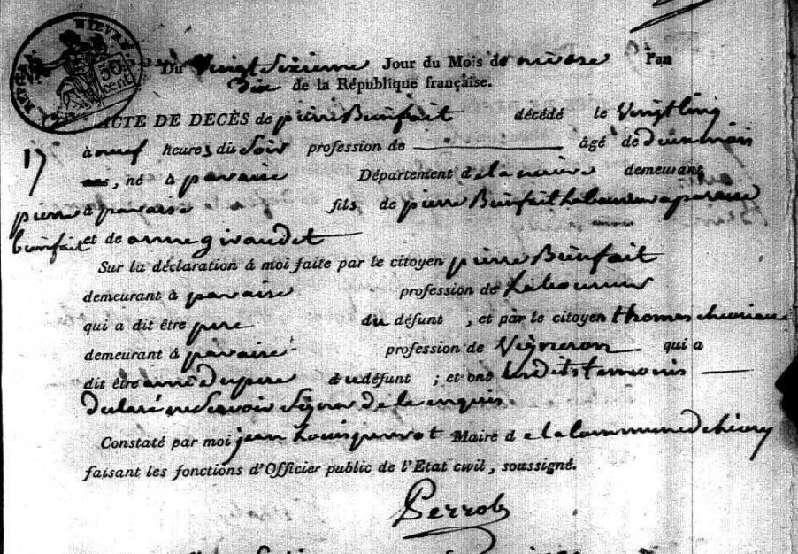 NIEVRE
Du Vingt Sixieme Jour du Mois de nivose l'an
Dix de la République française.
ACTE DE DECÈS de pierre Bienfait décédé le Vingt Cinq
17 à neuf heures du Soir profession de âgé de deux mois
né à pavaire Département de la nievre demeurant
pierre à pavaire fils de pierre Bienfait Laboureur a pavaire
bienfait et de anne giraudet
Sur la déclaration à moi faite par le citoyen pierre Bienfait
demeurant à pavaire profession de Laboureur
qui a dit être pere du défunt, et par le citoyen thomas
demeurant à pavaire profession de Vigneron qui a
dit être ami du pere du défunt; et ont Lesdits temoins
declaré ne Savoir Signer de ce enquis
Constaté par moi jean Louis perrot Maire de la Commune de
faisant les fonctions d'Officier public de l'Etat civil, soussigné.
Perrot